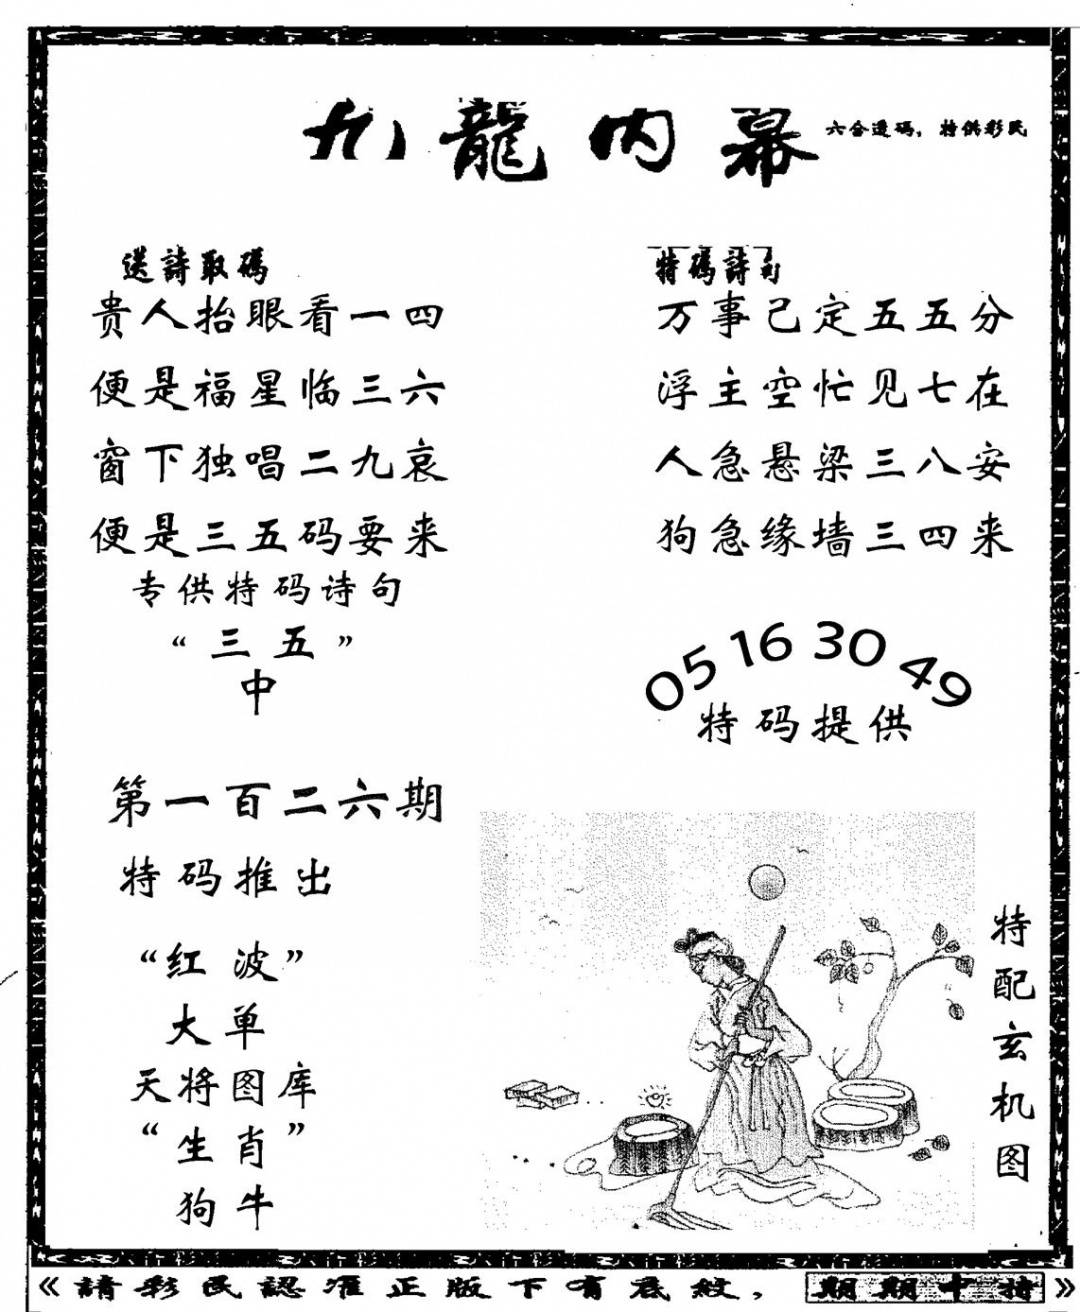 九龍内幕
六合透码，特供彩民
送詩取碼
贵人抬眼看一四
便是福星临三六
窗下独唱二九哀
便是三五码要来
专供特码诗句
“三五”
中
特碼詩句
万事己定五五分
浮主空忙见七在
人急悬梁三八安
狗急缘墙三四来
05 16 30 49
特码提供
第一百二六期
特码推出
“红波”
大单
天将图库
“生肖”
狗牛
特配玄机图
《請彩民認准正版下有底紋，期期中特》